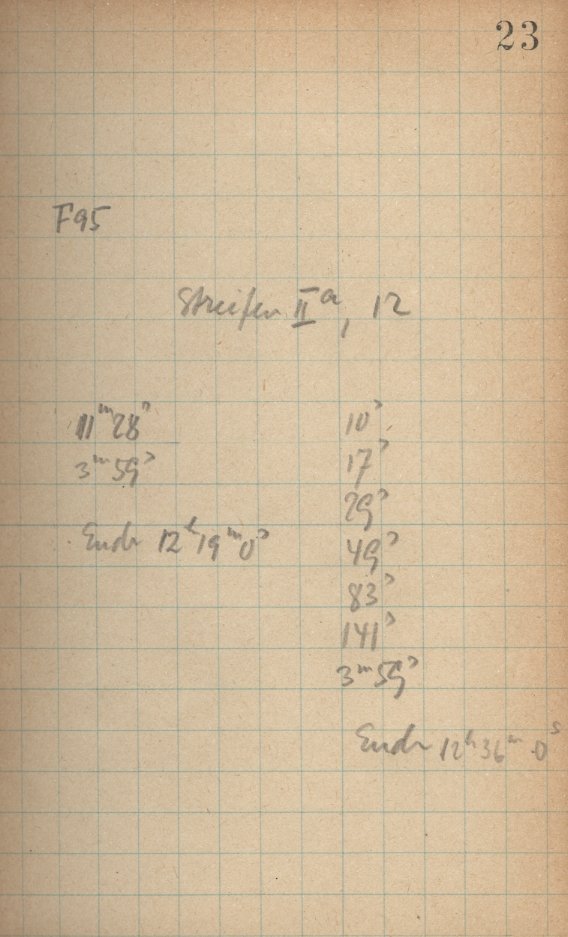 23
F95
Streifen IIa, 12
11m 28s
3m 59s
Ende 12h 19m 0s
10s
17s
29s
49s
83s
141s
3m 59s
Ende 12h 36m 0s